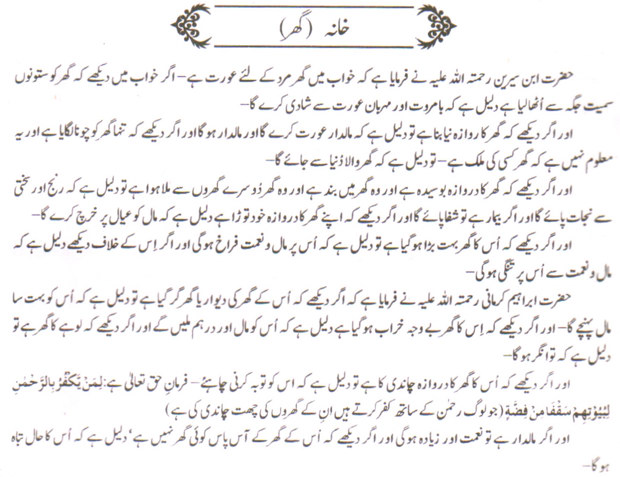 خانہ (گھر)
حضرت ابن سیرین رحمتہ اللہ علیہ نے فرمایا ہے کہ خواب میں گھر مرد کے لئے عورت ہے – اگر خواب میں دیکھے کہ گھر کو ستونوں
سمیت جگہ سے اٹھالیا ہے دلیل ہے کہ بامروت اور مہربان عورت سے شادی کرے گا –
اور اگر دیکھے کہ گھر کا دروازہ نیا بنا ہے تو دلیل ہے کہ مالدار عورت کرے گا اور مالدار ہو گا اور اگر دیکھے کہ تنہا گھر کو چونا لگایا ہے اور یہ
معلوم نہیں ہے کہ گھر کسی کی ملک ہے – تو دلیل ہے کہ گھر والا دُنیا سے جائے گا –
اور اگر دیکھے کہ گھر کا دروازہ بوسیدہ ہے اور وہ گھر میں بند ہے اور وہ گھر دُوسرے گھروں سے ملا ہوا ہے تو دلیل ہے کہ رنج اور سختی
سے نجات پائے گا اور اگر بیمار ہے تو شفا پائے گا اور اگر دیکھے کہ اپنے گھر کا دروازہ خود توڑا ہے دلیل ہے کہ مال کو عیال پر خرچ کرے گا –
اور اگر دیکھے کہ اُس کا گھر بہت بڑا ہو گیا ہے تو دلیل ہے کہ اُس پر مال و نعمت فراخ ہو گی اور اگر اِس کے خلاف دیکھے دلیل ہے کہ
مال و نعمت سے اُس پر تنگی ہو گی –
حضرت ابراہیم کرمانی رحمتہ اللہ علیہ نے فرمایا ہے کہ اگر دیکھے کہ اُس کے گھر کی دیوار یا گھر گر گیا ہے تو دلیل ہے کہ اُس کو بہت سا
مال پہنچے گا – اور اگر دیکھے کہ اِس کا گھر بے وجہ خراب ہو گیا ہے دلیل ہے کہ اُس کو مال اور درہم ملیں گے اور اگر دیکھے کہ لوہے کا گھر ہے تو
دلیل ہے کہ تو انگر ہو گا –
اور اگر دیکھے کہ اُس کا گھر کا دروازہ چاندی کا ہے تو دلیل ہے کہ اس کو توبہ کرنی چاہئے – فرمانِ حق تعالٰی ہے: لِمَنْ يَكْفُرُ بِالرَّحْمٰنِ
لِبُيُوْتِهِمْ سَقْفًا مِنْ فِضَّةٍ (جو لوگ رحمٰن کے ساتھ کفر کرتے ہیں ان کے گھروں کی چھت چاندی کی ہے)
اور اگر مالدار ہے تو نعمت اور زیادہ ہو گی اور اگر دیکھے کہ اُس کے گھر کے آس پاس کوئی گھر نہیں ہے' دلیل ہے کہ اُس کا حال تباہ
ہو گا –